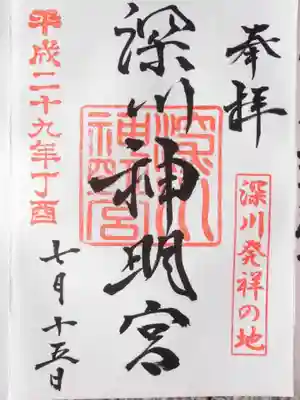 奉拝
深川発祥の地
深川神明宮
深川
神明宮
平成二十九年丁酉
七月十五日